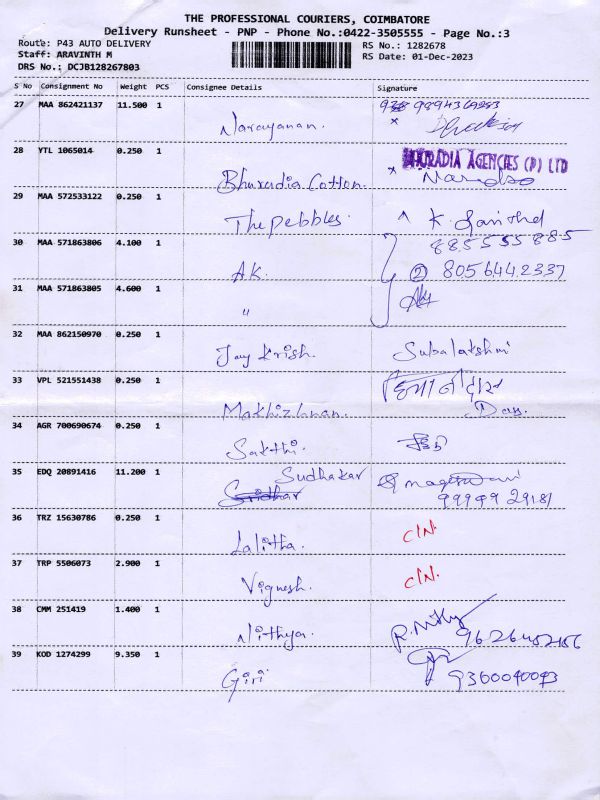 THE PROFESSIONAL COURIERS, COIMBATORE
Delivery Runsheet - PNP - Phone No.:0422-3505555 - Page No.:3
Route: P43 AUTO DELIVERY
RS No.: 1282678
Staff: ARAVINTH M
RS Date: 01-Dec-2023
DRS No.: DCJB128267803
S No Consignment No Weight PCS Consignee Details Signature
27 MAA 862421137 11.500 1 Narayanan.
28 YTL 1065014 0.250 1 Bhuradia Cotton. BHURADIA AGENCIES (P) LTD
29 MAA 572533122 0.250 1 The pebbles. K.
885555885
30 MAA 571863806 4.100 1 AK. 2 8056442337
31 MAA 571863805 4.600 1 "
32 MAA 862150970 0.250 1 Jay Krish. Subalakshmi
33 VPL 521551438 0.250 1 Makizhnan. Dass.
34 AGR 700690674 0.250 1 Sakthi.
35 EDQ 20891416 11.200 1 Sudhakar
Sridhar 9999929181
36 TRZ 15630786 0.250 1 Lalitha. C/N.
37 TRP 5506073 2.900 1 Vignesh. C/N.
38 CMM 251419 1.400 1 Nithya. 9626452156
39 KOD 1274299 9.350 1 Giri 9360040093